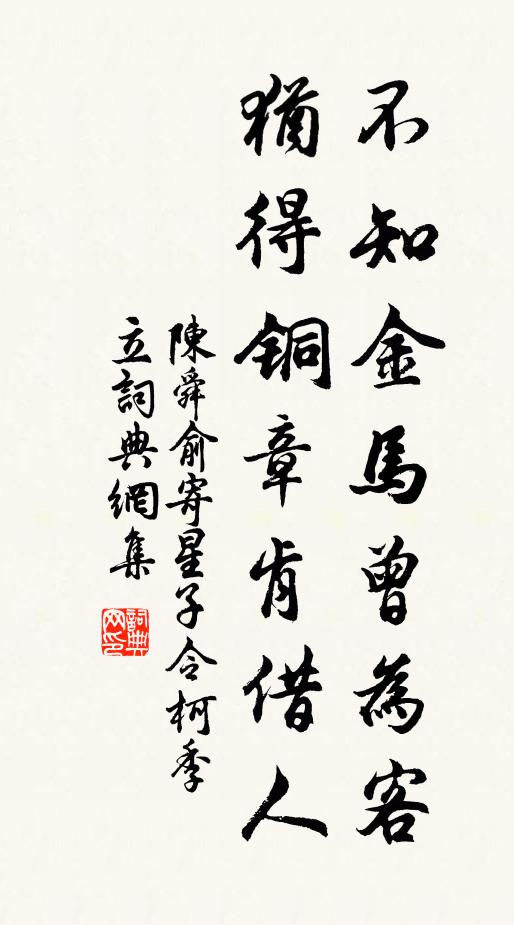 不知金馬曾為客
猶得銅章肯借人
陳舜俞寄星子令柯季
立詞典網集
詞典
网印